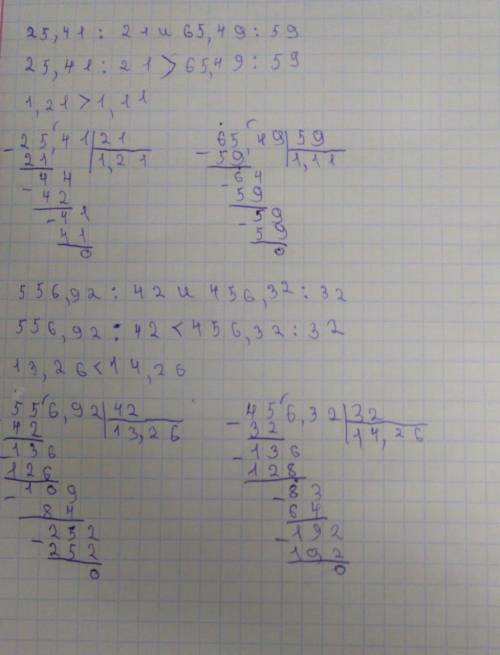 25,41 : 21 и 65,49 : 59
25,41 : 21 > 65,49 : 59
1,21 > 1,11
25,41 21
21 1,21
44
42
41
41
0
65,49 59
59 1,11
64
59
59
59
0
556,92 : 42 и 456,32 : 32
556,92 : 42 < 456,32 : 32
13,26 < 14,26
556,92 42
42 13,26
136
126
109
84
252
252
0
456,32 32
32 14,26
136
128
83
64
192
192
0